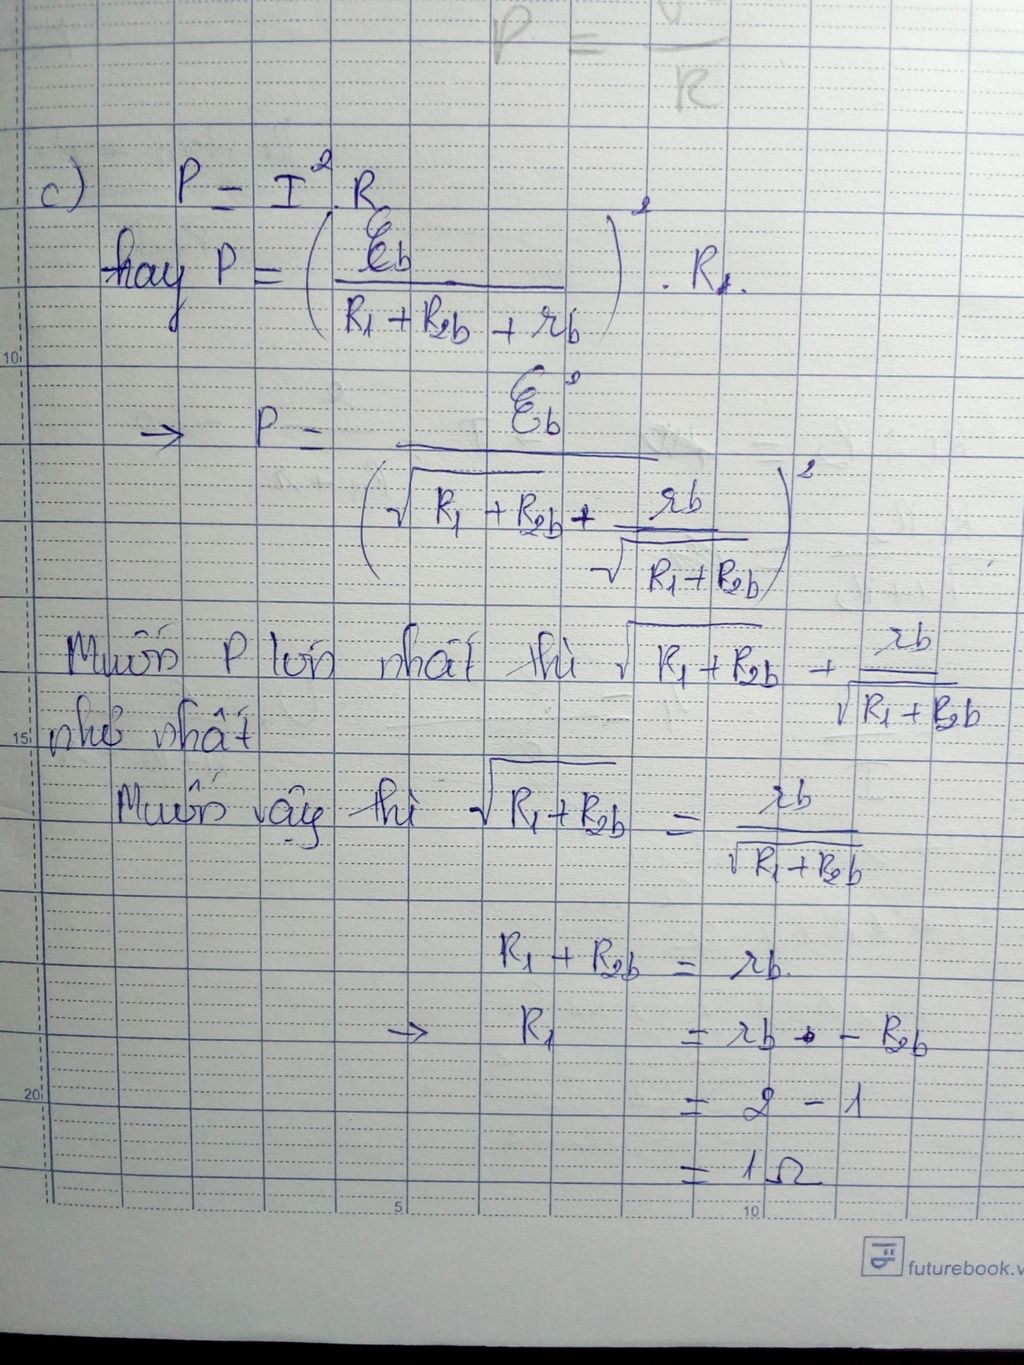 P = V / R
c) P = I² . R
hay P = ( ℰb / (R₁ + R₂b + rb) )² . R₁.
10
→ P = ℰb² / ( √(R₁ + R₂b) + rb / √(R₁ + R₂b) )²
Muốn P lớn nhất thì √(R₁ + R₂b) + rb / √(R₁ + R₂b)
15 nhỏ nhất
Muốn vậy thì √(R₁ + R₂b) = rb / √(R₁ + R₂b)
R₁ + R₂b = rb.
→ R₁ = rb - R₂b
20 = 2 - 1
= 1 Ω
5 10
futurebook.v